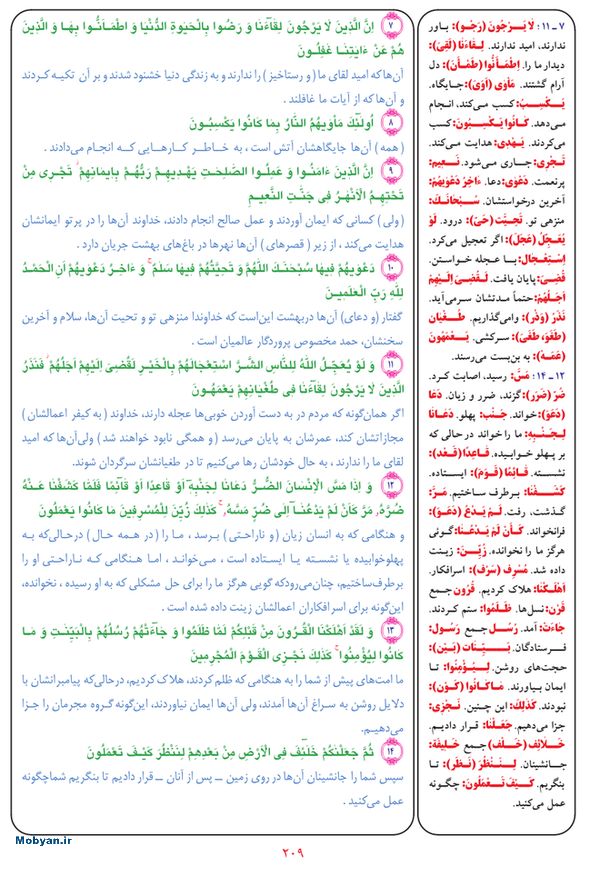 ۷ـ۱۱: لَا يَرْجُونَ (رَجَوَ): باور
ندارند، امید ندارند. لِقَاءَنَا (لَقِيَ):
دیدار ما را. اِطْمَأَنُّوا (طَمْأَنَ): دل
آرام گشتند. مَأْوَى (أَوَى): جایگاه.
يَكْسِبُ: کسب می‌کند، انجام
می‌دهد. كَانُوا يَكْسِبُونَ: کسب
می‌کردند. يَهْدِي: هدایت می‌کند.
تَجْرِي: جاری می‌شود. نَعِيم:
پرنعمت. دَعْوَى: دعا. ءَاخِرُ دَعْوَيهُمْ:
آخرین درخواستشان. سُبْحَانَكَ:
منزهی تو. تَحِيَّت (حَيَّ): درود. لَوْ
يُعَجِّلُ (عَجَلَ): اگر تعجیل می‌کرد.
اِسْتِعْجَال: با عجله خواستن.
قُضِيَ: پایان یافت. لَقُضِيَ إِلَيْهِمْ
أَجَلُهُمْ: حتماً مدتشان سر می‌آید.
نَذَرُ (وَذَرَ): وامی‌گذاریم. طُغْيَان
(طَغَوَ، طَغَى): سرکشی. يَعْمَهُونَ
(عَمَهَ): به بن‌بست می‌رسند.
۱۲ـ۱۴: مَسَّ: رسید، اصابت کرد.
ضُرّ (ضَرَرَ): گزند، ضرر و زیان. دَعَا
(دَعَوَ): خواند. جَنْب: پهلو. دَعَانَا
لِجَنْبِهِ: ما را خواند در حالی که
بر پهلو خوابیده. قَاعِدًا (قَعَدَ):
نشسته. قَائِمًا (قَوَمَ): ایستاده.
كَشَفْنَا: برطرف ساختیم. مَرَّ:
گذشت، رفت. لَمْ يَدْعُ (دَعَوَ):
فرانخواند. كَأَنْ لَمْ يَدْعُنَا: گوئی
هرگز ما را نخوانده. زُيِّنَ: زینت
داده شد. مُسْرِف (سَرَفَ): اسرافکار.
أَهْلَكْنَا: هلاک کردیم. قُرُون جمع
قَرْن: نسل‌ها. ظَلَمُوا: ستم کردند.
جَاءَتْ: آمد. رُسُل جمع رَسُول:
فرستادگان. بَيِّنَات (بَيَنَ):
حجت‌های روشن. لِيُؤْمِنُوا: تا
ایمان بیاورند. مَا كَانُوا (كَوَنَ):
نبودند. كَذٰلِكَ: این چنین. نَجْزِي:
جزا می‌دهیم. جَعَلْنَا: قرار دادیم.
خَلَائِف (خَلَفَ) جمع خَلِيفَة:
جانشینان. لِنَنْظُرَ (نَظَرَ): تا
بنگریم. كَيْفَ تَعْمَلُونَ: چگونه
عمل می‌کنید.
۷ اِنَّ الَّذينَ لَا يَرْجُونَ لِقَآءَنَا وَ رَضُوا بِالْحَيٰوةِ الدُّنْيَا وَ اطْمَاَنُّوا بِهَا وَ الَّذينَ
هُمْ عَنْ ءَايٰتِنَا غٰفِلُونَ
آن‌ها که امید لقای ما (و رستاخیز) را ندارند و به زندگی دنیا خشنود شدند و بر آن تکیه کردند
و آن‌ها که از آیات ما غافلند .
۸ اُولٰٓئِكَ مَأْوٰيهُمُ النَّارُ بِمَا كَانُوا يَكْسِبُونَ
(همه) آن‌ها جایگاهشان آتش است ، به خاطر کارهایی که انجام می‌دادند .
۹ اِنَّ الَّذينَ ءَامَنُوا وَ عَمِلُوا الصّٰلِحٰتِ يَهْديهِمْ رَبُّهُمْ بِايمَانِهِمْ ۖ تَجْرى مِنْ
تَحْتِهِمُ الْاَنْهٰرُ فى جَنّٰتِ النَّعيمِ
(ولی) کسانی که ایمان آوردند و عمل صالح انجام دادند، خداوند آن‌ها را در پرتو ایمانشان
هدایت می‌کند ، از زیر (قصرهای) آن‌ها نهرها در باغ‌های بهشت جریان دارد .
۱۰ دَعْوٰيهُمْ فيهَا سُبْحٰنَكَ اللّٰهُمَّ وَ تَحِيَّتُهُمْ فيهَا سَلٰمٌ ۚ وَ ءَاخِرُ دَعْوٰيهُمْ اَنِ الْحَمْدُ
لِلّٰهِ رَبِّ الْعٰلَمينَ
گفتار (و دعای) آن‌ها در بهشت این است که خداوندا منزهی تو و تحیت آن‌ها، سلام و آخرین
سخنشان، حمد مخصوص پروردگار عالمیان است .
۱۱ وَ لَوْ يُعَجِّلُ اللّٰهُ لِلنَّاسِ الشَّرَّ اسْتِعْجَالَهُمْ بِالْخَيْرِ لَقُضِىَ اِلَيْهِمْ اَجَلُهُمْ ۖ فَنَذَرُ
الَّذينَ لَا يَرْجُونَ لِقَآءَنَا فى طُغْيَانِهِمْ يَعْمَهُونَ
اگر همان‌گونه که مردم در به دست آوردن خوبی‌ها عجله دارند، خداوند (به کیفر اعمالشان)
مجازاتشان کند، عمرشان به پایان می‌رسد (و همگی نابود خواهند شد) ولی آن‌ها که امید
لقای ما را ندارند ، به حال خودشان رها می‌کنیم تا در طغیانشان سرگردان شوند.
۱۲ وَ اِذَا مَسَّ الْاِنْسَانَ الضُّرُّ دَعَانَا لِجَنْبِهٖٓ اَوْ قَاعِدًا اَوْ قَآئِمًا فَلَمَّا كَشَفْنَا عَنْهُ
ضُرَّهُ ، مَرَّ كَاَنْ لَمْ يَدْعُنَآ اِلٰى ضُرٍّ مَسَّهُ ۚ كَذٰلِكَ زُيِّنَ لِلْمُسْرِفينَ مَا كَانُوا يَعْمَلُونَ
و هنگامی که به انسان زیان (و ناراحتی) برسد ، ما را (در همه حال) درحالی‌که به
پهلوخوابیده یا نشسته یا ایستاده است ، می‌خواند ، اما هنگامی که ناراحتی او را
برطرف‌ساختیم، چنان‌می‌رودکه گویی هرگز ما را برای حل مشکلی که به او رسیده ، نخوانده،
این‌گونه برای اسرافکاران اعمالشان زینت داده شده است .
۱۳ وَ لَقَدْ اَهْلَكْنَا الْقُرُونَ مِنْ قَبْلِكُمْ لَمَّا ظَلَمُوا وَ جَآءَتْهُمْ رُسُلُهُمْ بِالْبَيِّنٰتِ وَ مَا
كَانُوا لِيُؤْمِنُوا ۚ كَذٰلِكَ نَجْزِى الْقَوْمَ الْمُجْرِمينَ
ما امت‌های پیش از شما را به هنگامی که ظلم کردند، هلاک کردیم، درحالی‌که پیامبرانشان با
دلایل روشن به سراغ آن‌ها آمدند، ولی آن‌ها ایمان نیاوردند، این‌گونه گروه مجرمان را جزا
می‌دهیم.
۱۴ ثُمَّ جَعَلْنٰكُمْ خَلٰٓئِفَ فِى الْاَرْضِ مِنْ بَعْدِهِمْ لِنَنْظُرَ كَيْفَ تَعْمَلُونَ
سپس شما را جانشینان آن‌ها در روی زمین ــ پس از آنان ــ قرار دادیم تا بنگریم شماچگونه
عمل می‌کنید .
Mobyan.ir
۲۰۹